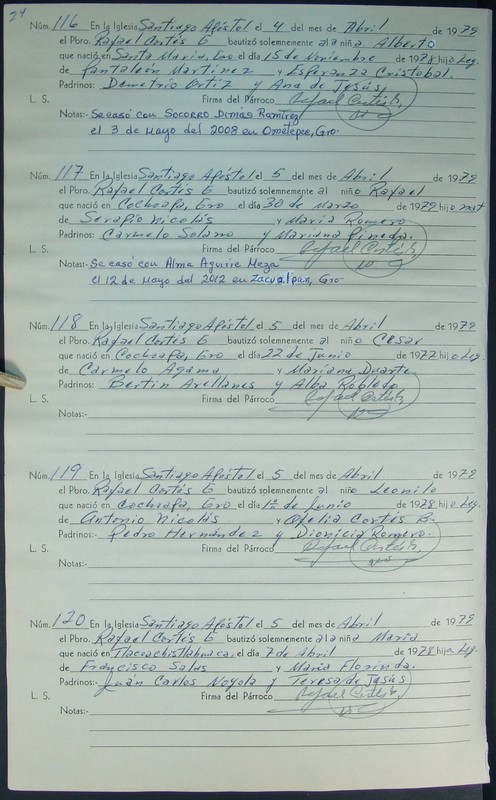 24
Núm. 116 En la Iglesia Santiago Apóstol el 4 del mes de Abril de 1979
el Pbro. Rafael Cortés G bautizó solemnemente a la niña Alberto
que nació en Santa María, Gro el día 15 de Noviembre de 1978 hijo Leg.
de Pantaleón Martinez y Esperanza Cristobal.
Padrinos: Demetrio Ortiz y Ana de Jesús,
L. S. Firma del Párroco Rafael Cortés G,
Notas:- Se casó con SOCORRO Dimás Ramírez
el 3 de Mayo del 2008 en Ometepec, Gro.
Núm. 117 En la Iglesia Santiago Apóstol el 5 del mes de Abril de 1979
el Pbro. Rafael Cortés G bautizó solemnemente al niño Rafael
que nació en Cochoapa, Gro el día 30 de Marzo de 1979 hijo nat
de Serafio Nicolás y María Romero
Padrinos: Carmelo Solano y Mariana Pineda.
L. S. Firma del Párroco Rafael Cortés G,
Notas:- Se casó con Alma Aguirre Meza
el 12 de Mayo del 2012 en Zacualpan, Gro
Núm. 118 En la Iglesia Santiago Apóstol el 5 del mes de Abril de 1979
el Pbro. Rafael Cortés G bautizó solemnemente al niño Cesar
que nació en Cochoapa, Gro el día 22 de Junio de 1977 hijo Leg.
de Carmelo Agama y Mariana Duarte
Padrinos: Bertin Arellanes y Alba Robledo
L. S. Firma del Párroco Rafael Cortés G,
Notas:-
Núm. 119 En la Iglesia Santiago Apóstol el 5 del mes de Abril de 1979
el Pbro. Rafael Cortés G bautizó solemnemente al niño Leonilo
que nació en Cochoapa, Gro el día 1º de Junio de 1978 hijo Leg.
de Antonio Nicolás y Ofelia Cortés B.
Padrinos:- Pedro Hernández y Dionicia Romero.
L. S. Firma del Párroco Rafael Cortés G,
Notas:-
Núm. 120 En la Iglesia Santiago Apóstol el 5 del mes de Abril de 1979
el Pbro. Rafael Cortés G bautizó solemnemente a la niña María
que nació en Tlacoachistlahuaca, el día 7 de Abril de 1978 hija Leg.
de Francisco Salas y María Florinda.
Padrinos:- Juán Carlos Noyola y Teresa de Jesús
L. S. Firma del Párroco Rafael Cortés G,
Notas:-